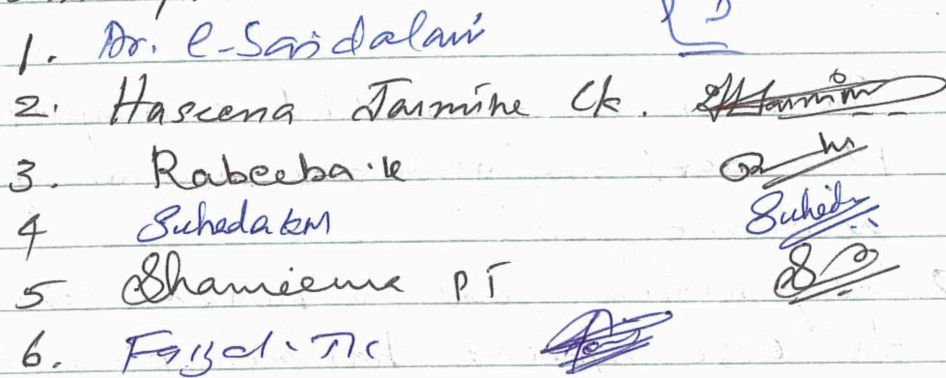 1. Dr. e-Saidalavi
2. Haseena Jasmine Ck.
3. Rabeeba.k
4 Suhada KM Suhada
5 Shameema PT
6. Faizal. TK